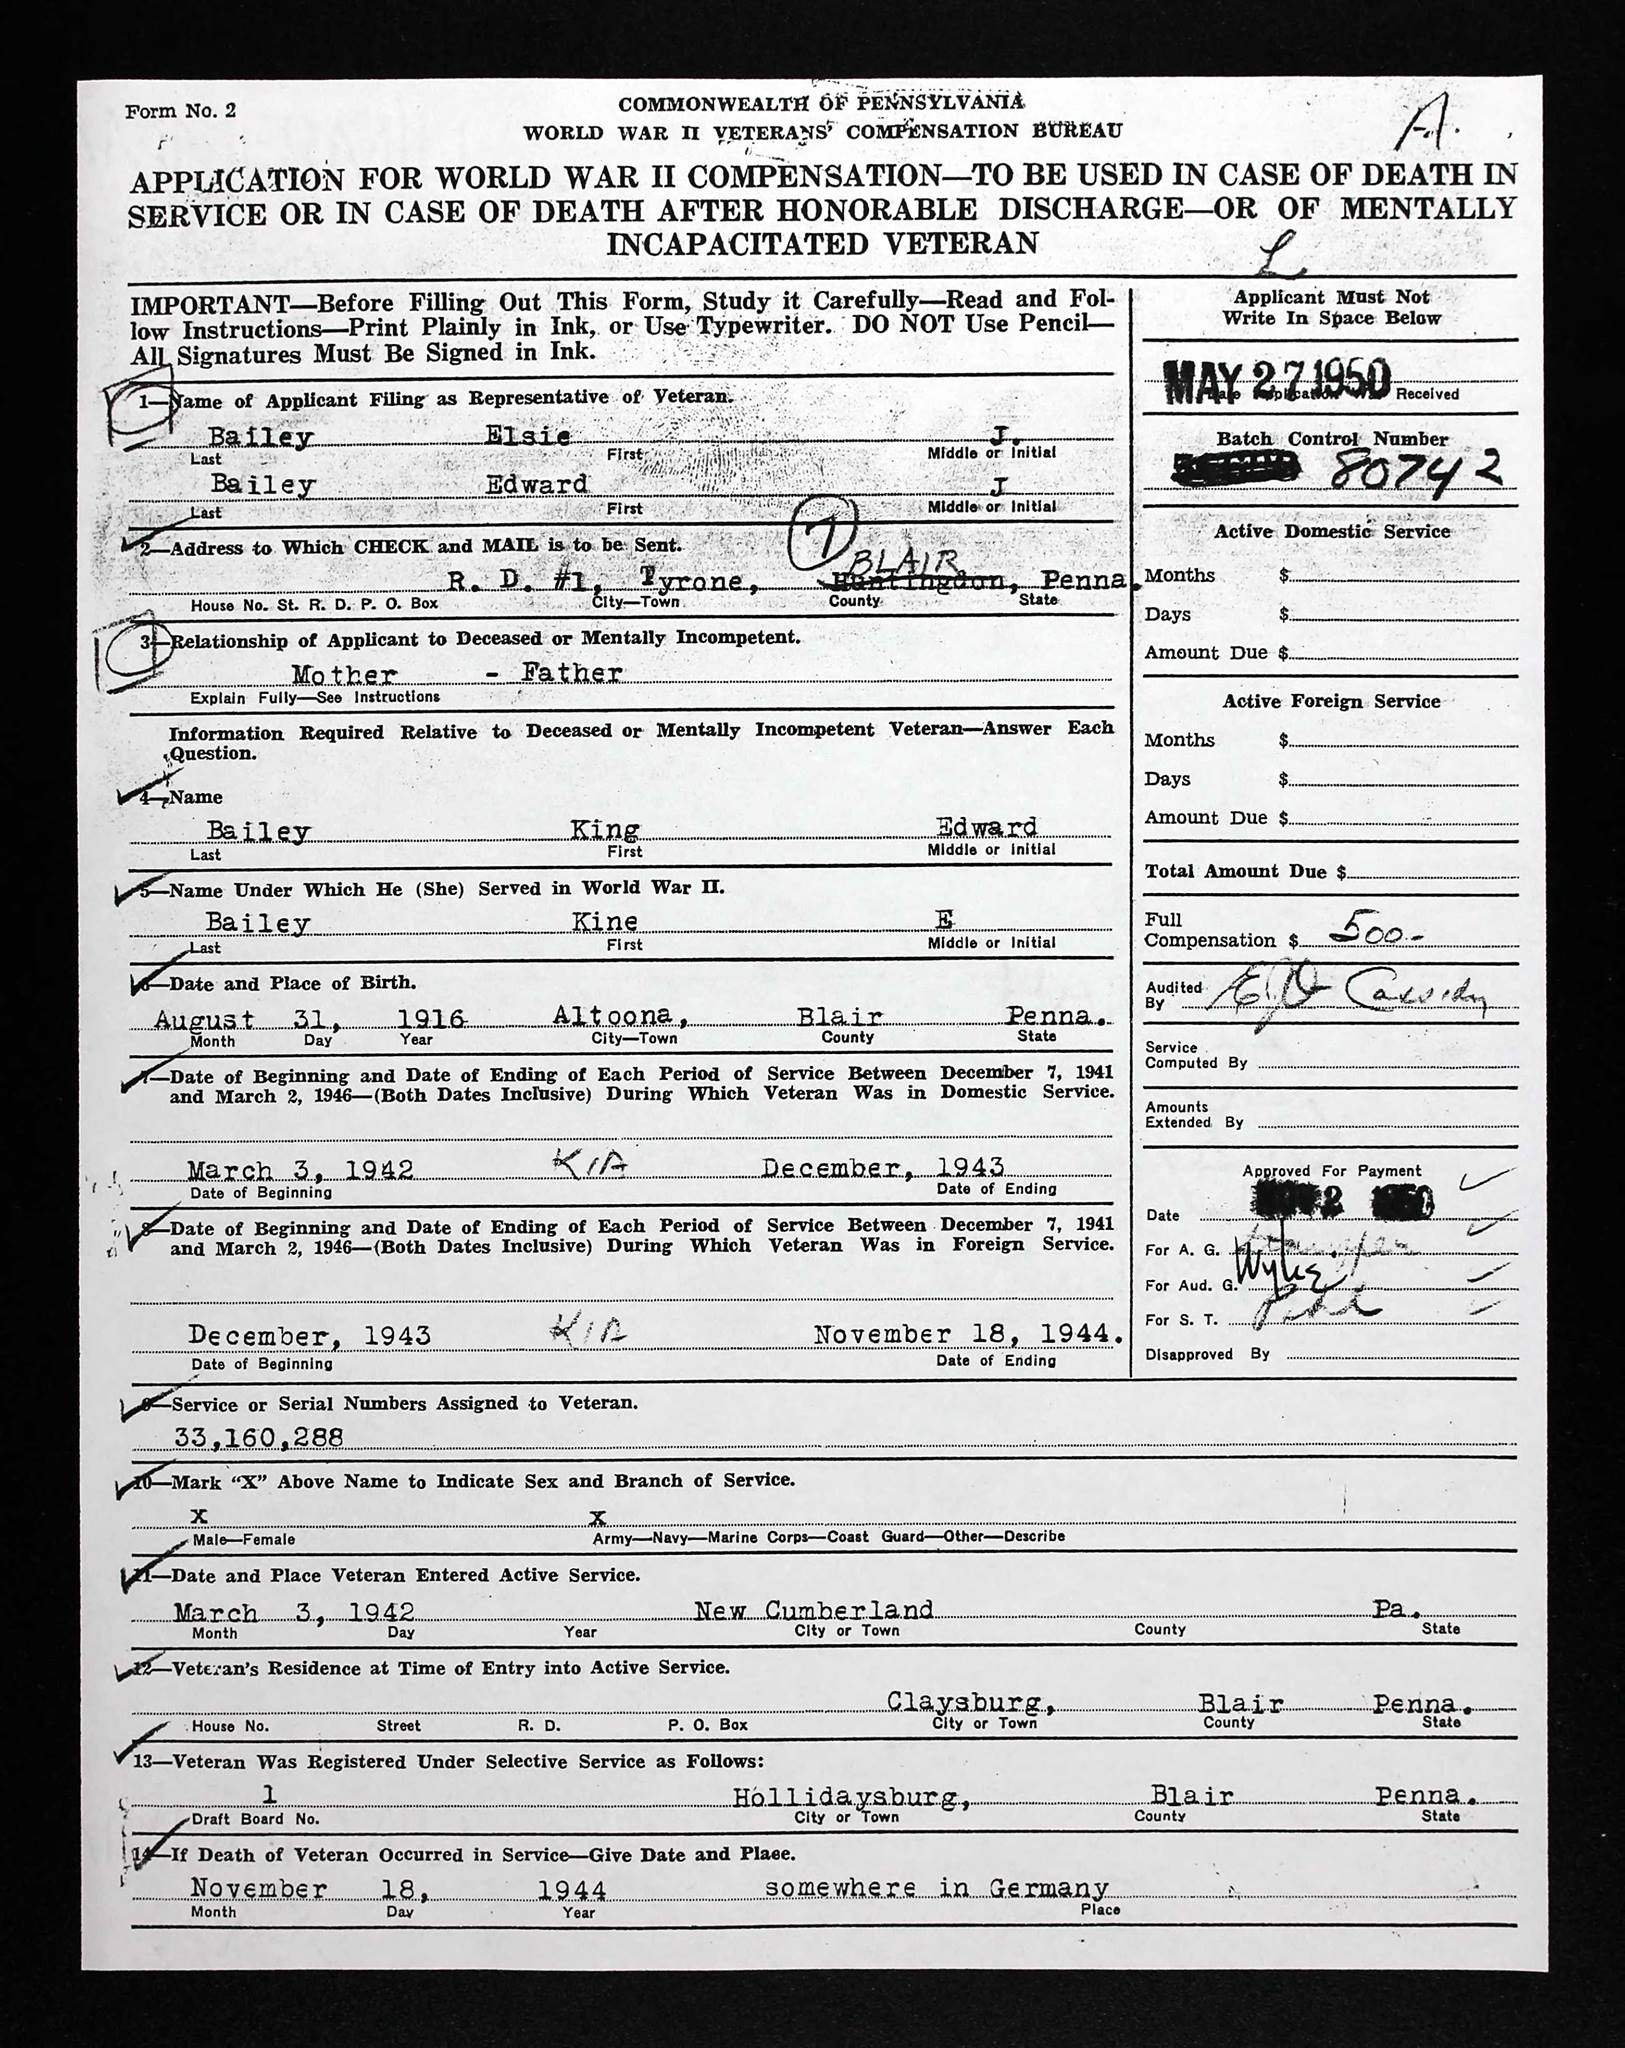 Form No. 2
COMMONWEALTH OF PENNSYLVANIA
WORLD WAR II VETERANS' COMPENSATION BUREAU
A.
APPLICATION FOR WORLD WAR II COMPENSATION—TO BE USED IN CASE OF DEATH IN
SERVICE OR IN CASE OF DEATH AFTER HONORABLE DISCHARGE—OR OF MENTALLY
INCAPACITATED VETERAN
L
IMPORTANT—Before Filling Out This Form, Study it Carefully—Read and Fol-
low Instructions—Print Plainly in Ink, or Use Typewriter. DO NOT Use Pencil—
All Signatures Must Be Signed in Ink.
1—Name of Applicant Filing as Representative of Veteran.
Bailey Elsie J.
Last First Middle or Initial
Bailey Edward J
Last First Middle or Initial
2—Address to Which CHECK and MAIL is to be Sent.
7
BLAIR
R. D. #1, Tyrone, Huntingdon, Penna.
House No. St. R. D. P. O. Box City—Town County State
3—Relationship of Applicant to Deceased or Mentally Incompetent.
Mother - Father
Explain Fully—See Instructions
Information Required Relative to Deceased or Mentally Incompetent Veteran—Answer Each
Question.
4—Name
Bailey King Edward
Last First Middle or Initial
5—Name Under Which He (She) Served in World War II.
Bailey Kine E
Last First Middle or Initial
6—Date and Place of Birth.
August 31, 1916 Altoona, Blair Penna.
Month Day Year City—Town County State
7—Date of Beginning and Date of Ending of Each Period of Service Between December 7, 1941
and March 2, 1946—(Both Dates Inclusive) During Which Veteran Was in Domestic Service.
March 3, 1942 KIA December, 1943
Date of Beginning Date of Ending
8—Date of Beginning and Date of Ending of Each Period of Service Between December 7, 1941
and March 2, 1946—(Both Dates Inclusive) During Which Veteran Was in Foreign Service.
December, 1943 KIA November 18, 1944.
Date of Beginning Date of Ending
Applicant Must Not
Write In Space Below
MAY 27 1950
Date Application Was Received
Batch Control Number
80742
Active Domestic Service
Months $
Days $
Amount Due $
Active Foreign Service
Months $
Days $
Amount Due $
Total Amount Due $
Full
Compensation $ 500-
Audited
By Cassidy
Service
Computed By
Amounts
Extended By
Approved For Payment
Date NOV 2 1950
For A. G.
For Aud. G. Wyke
For S. T.
Disapproved By
9—Service or Serial Numbers Assigned to Veteran.
33,160,288
10—Mark "X" Above Name to Indicate Sex and Branch of Service.
X X
Male—Female Army—Navy—Marine Corps—Coast Guard—Other—Describe
11—Date and Place Veteran Entered Active Service.
March 3, 1942 New Cumberland Pa.
Month Day Year City or Town County State
12—Veteran's Residence at Time of Entry into Active Service.
Claysburg, Blair Penna.
House No. Street R. D. P. O. Box City or Town County State
13—Veteran Was Registered Under Selective Service as Follows:
1 Hollidaysburg, Blair Penna.
Draft Board No. City or Town County State
14—If Death of Veteran Occurred in Service—Give Date and Place.
November 18, 1944 somewhere in Germany
Month Day Year Place